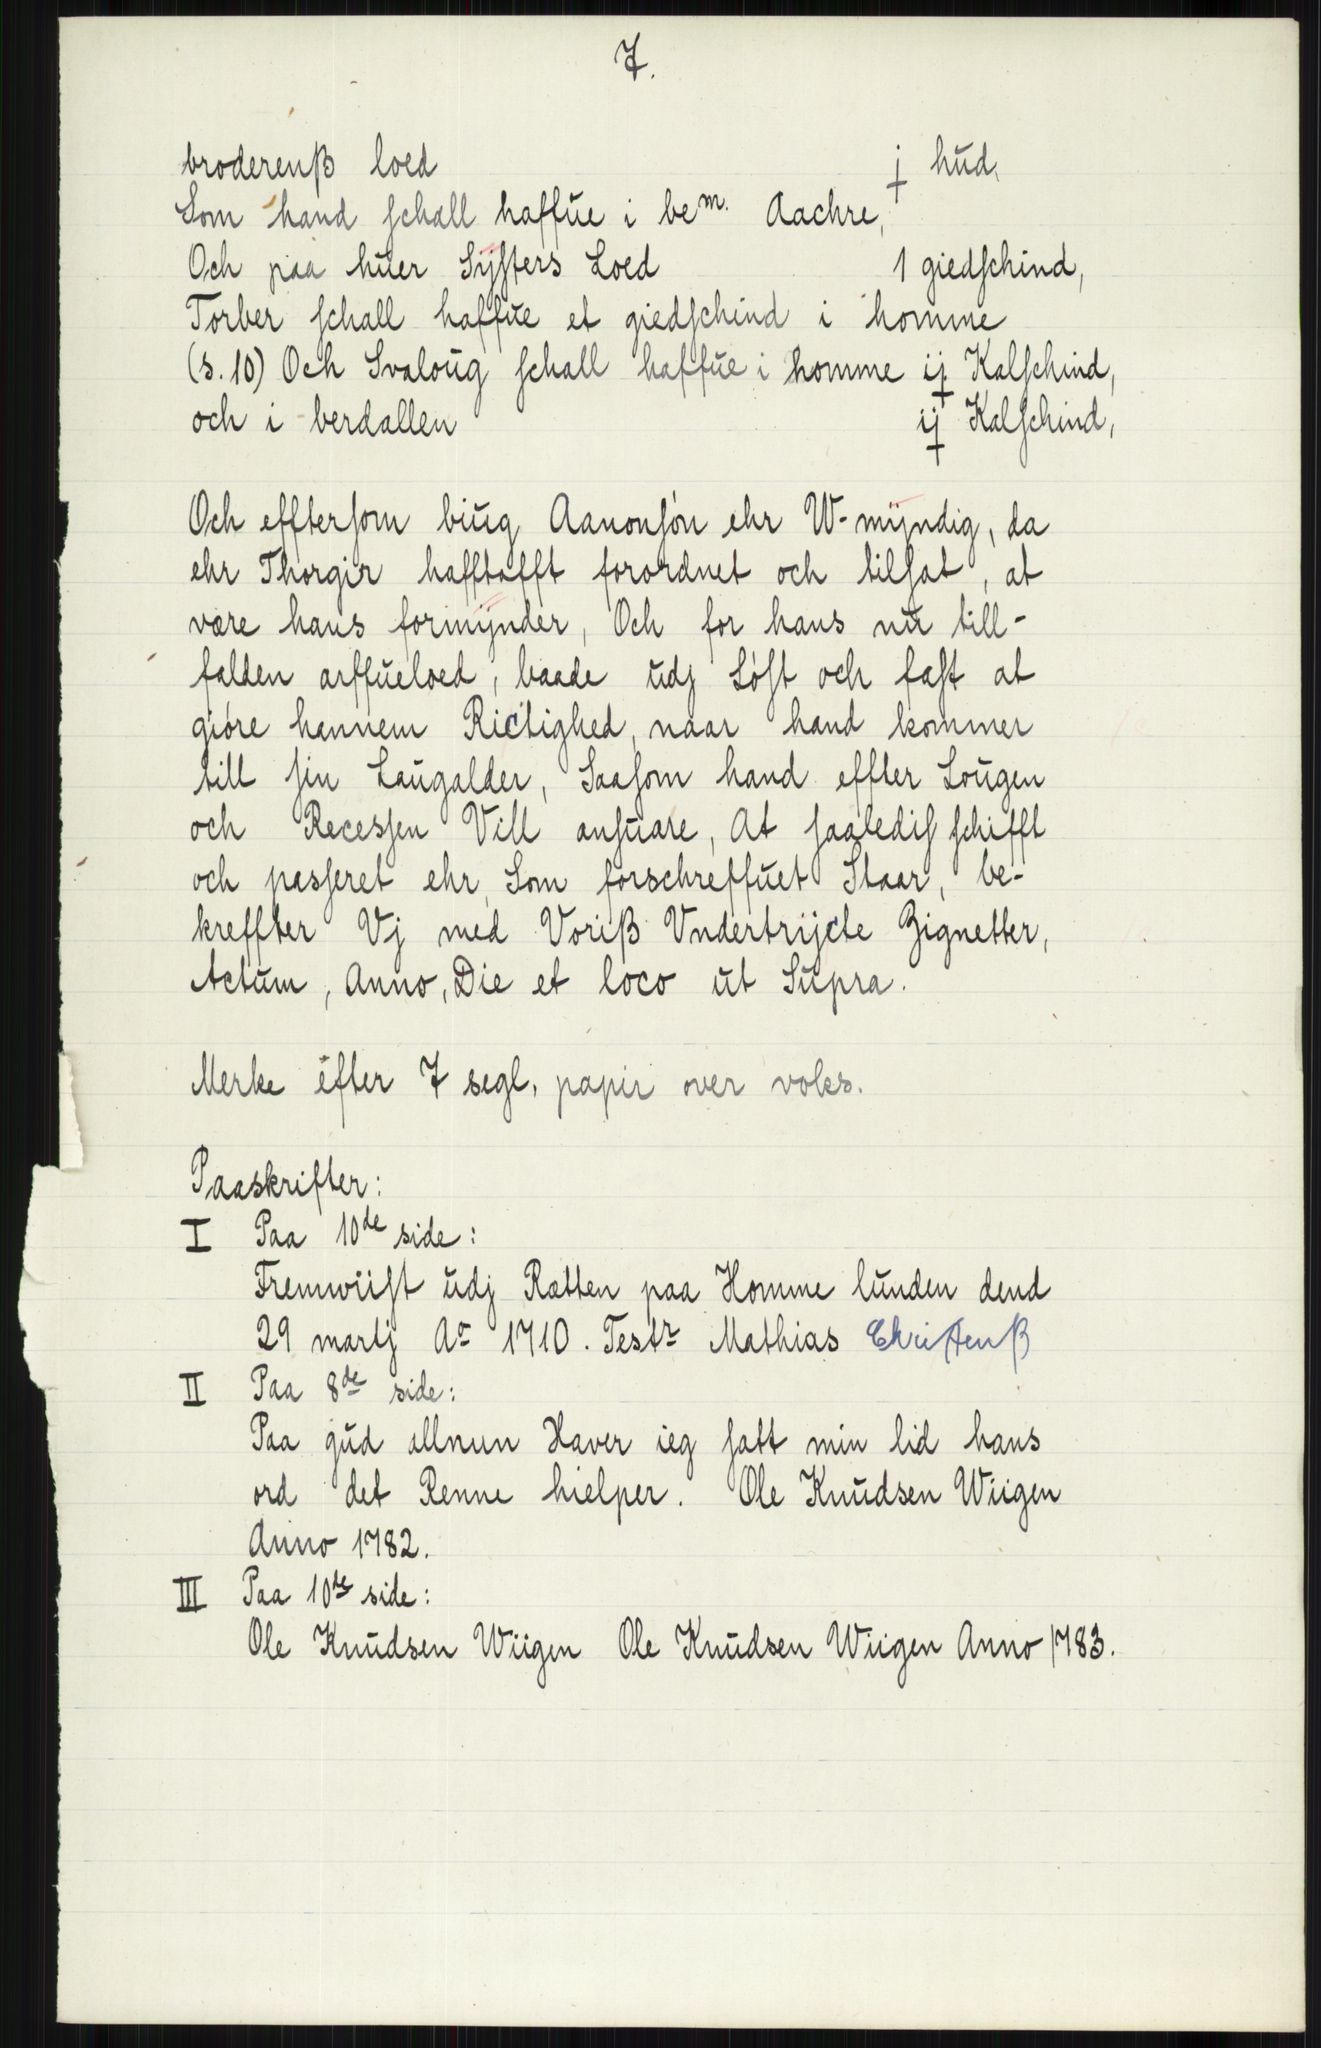 7.
broderenß loed j hud,
Som hand schall haffue i be m. Aachre,
Och paa huer Sÿsters Loed 1 giedschind,
Torber schall haffue et giedschind i homme
(s. 10) Och Svaloug schall haffue i homme ij Kalschind,
och i berdallen ij Kalschind,
Och efftersom biug Aanonsøn ehr W-mÿndig, da
ehr Thorgir hafftafft forordnet och tilsat, at
være hans formÿnder, Och for hans nu till-
falden arffueloed, baade udj Løst och fast at
giøre hannem Rictighed, naar hand kommer
till sin Laugalder, Saasom hand effter Lougen
och Recessen Vill ansuare, At saaledis schifft
och passeret ehr, Som forschreffuet Staar, be-
kreffter Vj med Voriß Vndertrÿcte Zignetter,
Actum, Anno, Die et loco ut Supra.
Merke efter 7 segl, papir over voks.
Paaskrifter:
I Paa 10de side:
Fremwiist udj Rætten paa Homme lunden dend
29 martj Ao 1710. Testr Mathias Christenß
II Paa 8de side:
Paa gud allnun Haver ieg satt min lid hans
ord det Renne hielper. Ole Knudsen Wiigen
Anno 1782.
III Paa 10de side:
Ole Knudsen Wiigen Ole Knudsen Wiigen Anno 1783.